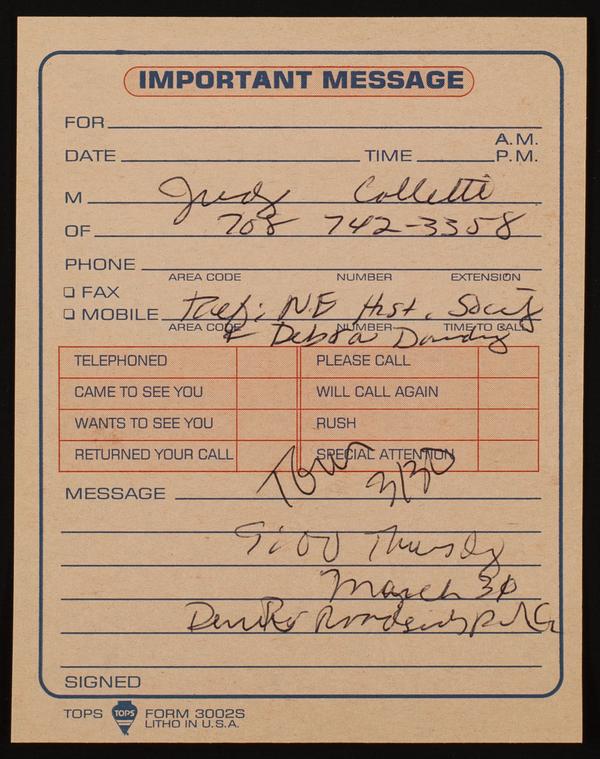 IMPORTANT MESSAGE
FOR
A.M.
DATE TIME P.M.
M Judy Colletti
OF 708 742-3358
PHONE
AREA CODE NUMBER EXTENSION
FAX
MOBILE Ref: N.E Hist. Society
AREA CODE NUMBER TIME TO CALL
& Debra Dandy
TELEPHONED PLEASE CALL
CAME TO SEE YOU WILL CALL AGAIN
WANTS TO SEE YOU RUSH
RETURNED YOUR CALL SPECIAL ATTENTION
Tour 3/30
MESSAGE
9:00 Thursdy
March 30
SIGNED
TOPS TOPS FORM 3002S
LITHO IN U.S.A.